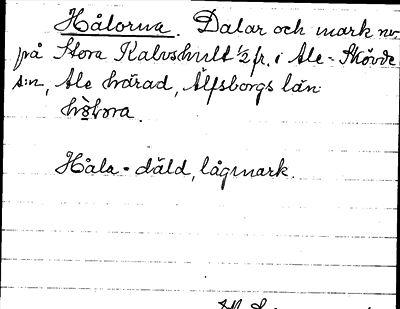 Hålorna. Dalar och mark nv
på Stora Kalvshult 1/2 fr. i Ale-Skövde
s:n, Ale härad, Älfsborgs län.
Håla = däld, lågmark.